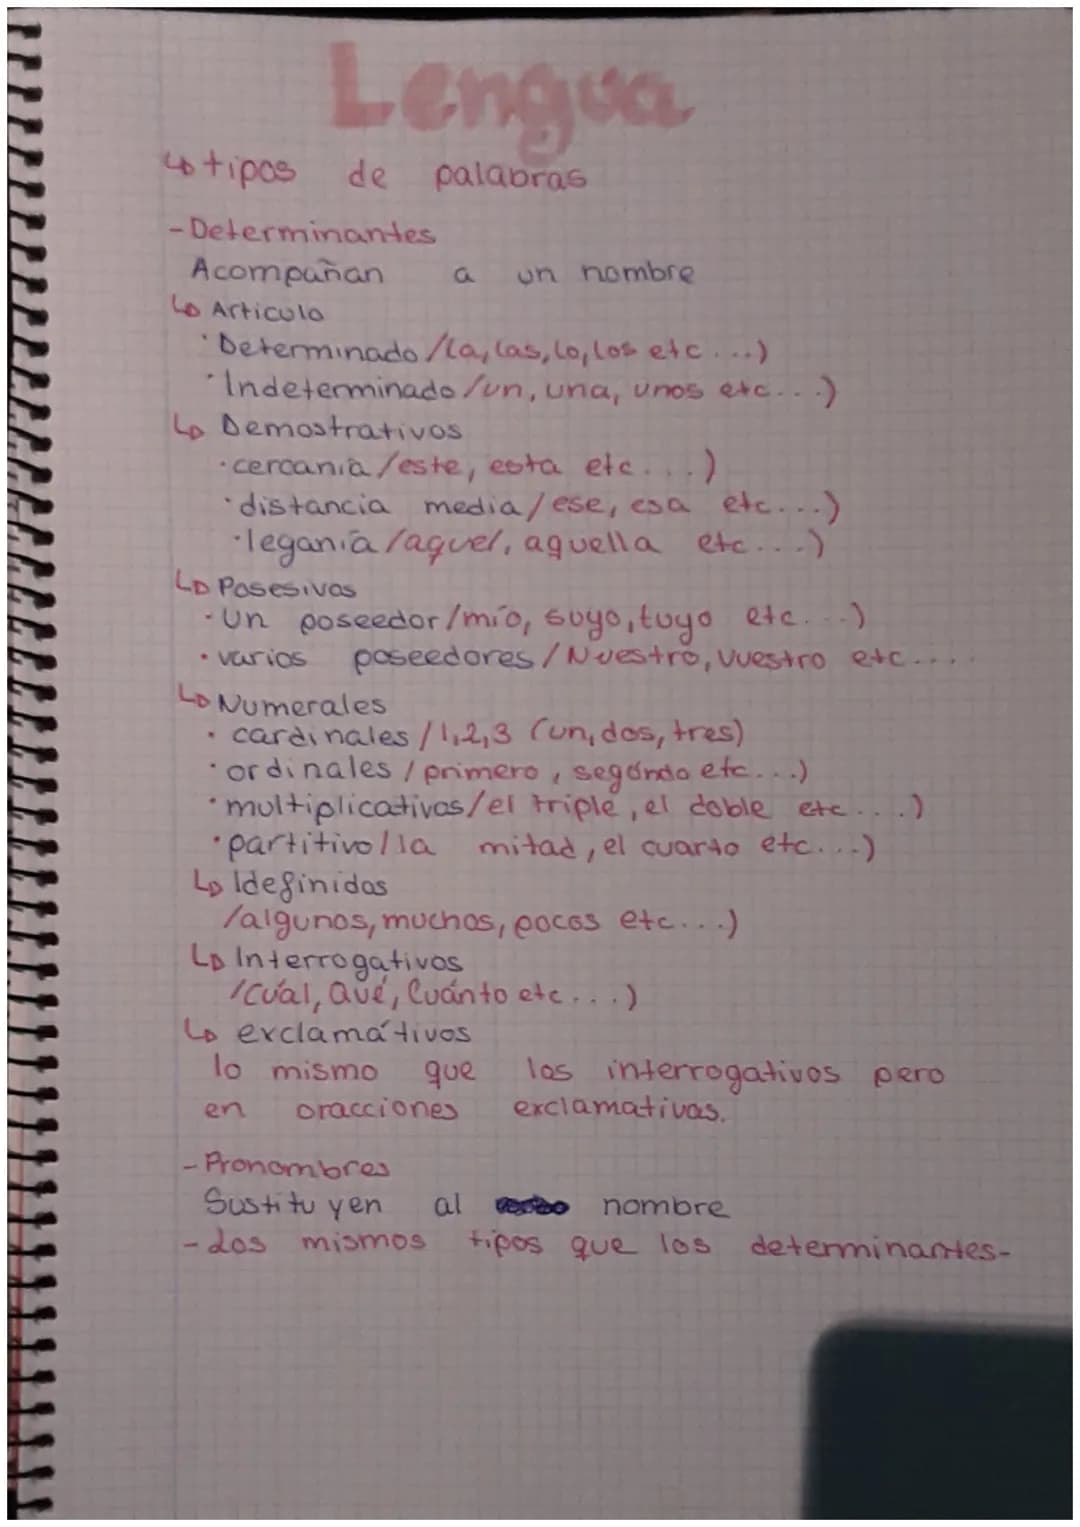 Lengua
↳ tipos de palabras
- Determinantes
Acompañan a un nombre
↳ Articulo
· Determinado /la, las, lo, los etc....)
· Indeterminado /un, una, unos etc....)
↳ Demostrativos
· cercanía /este, esta etc....)
· distancia media /ese, esa etc....)
· leganía /aquel, aquella etc....)
↳ Posesivos
· Un poseedor /mío, suyo, tuyo etc....)
· varios poseedores / Nuestro, Vuestro etc....
↳ Numerales
· cardinales / 1,2,3 (un, dos, tres)
· ordinales / primero, segúndo etc....)
· multiplicativos /el triple, el doble etc....)
· partitivo / la mitad, el cuarto etc....)
↳ Idefinidos
/algunos, muchos, pocos etc....)
↳ Interrogativos
/Cuál, Qué, Cuánto etc....)
↳ exclamátivos
lo mismo que los interrogativos pero
en oracciones exclamativas.
- Pronombres
Sustituyen al nombre
- Los mismos tipos que los determinantes-